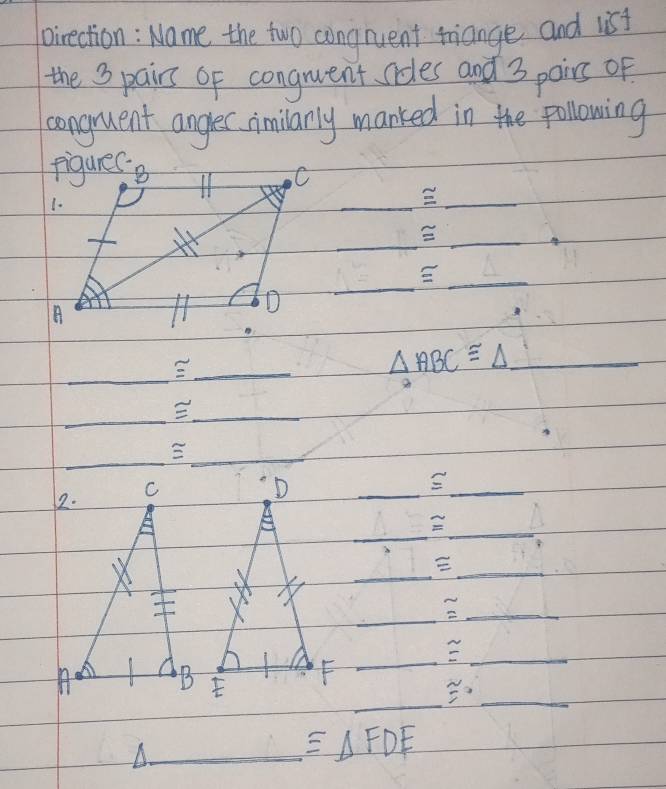 Direction: Name the two congruent triange and list
the 3 pairs of congruent sides and 3 pairs of
congruent angles similarly marked in the following
figures.
1.
B
C
A
D
____ ≅ ____
____ ≅ ____
____ ≅ ____
____ ≅ ____
△ ABC ≅ △ ____
____ ≅ ____
____ ≅ ____
2.
C
D
A
B
E
F
____ ≅ ____
____ ≅ ____
____ ≅ ____
____ ≅ ____
____ ≅ ____
____ ≅ ____
△ ____ ≅ △ FDE